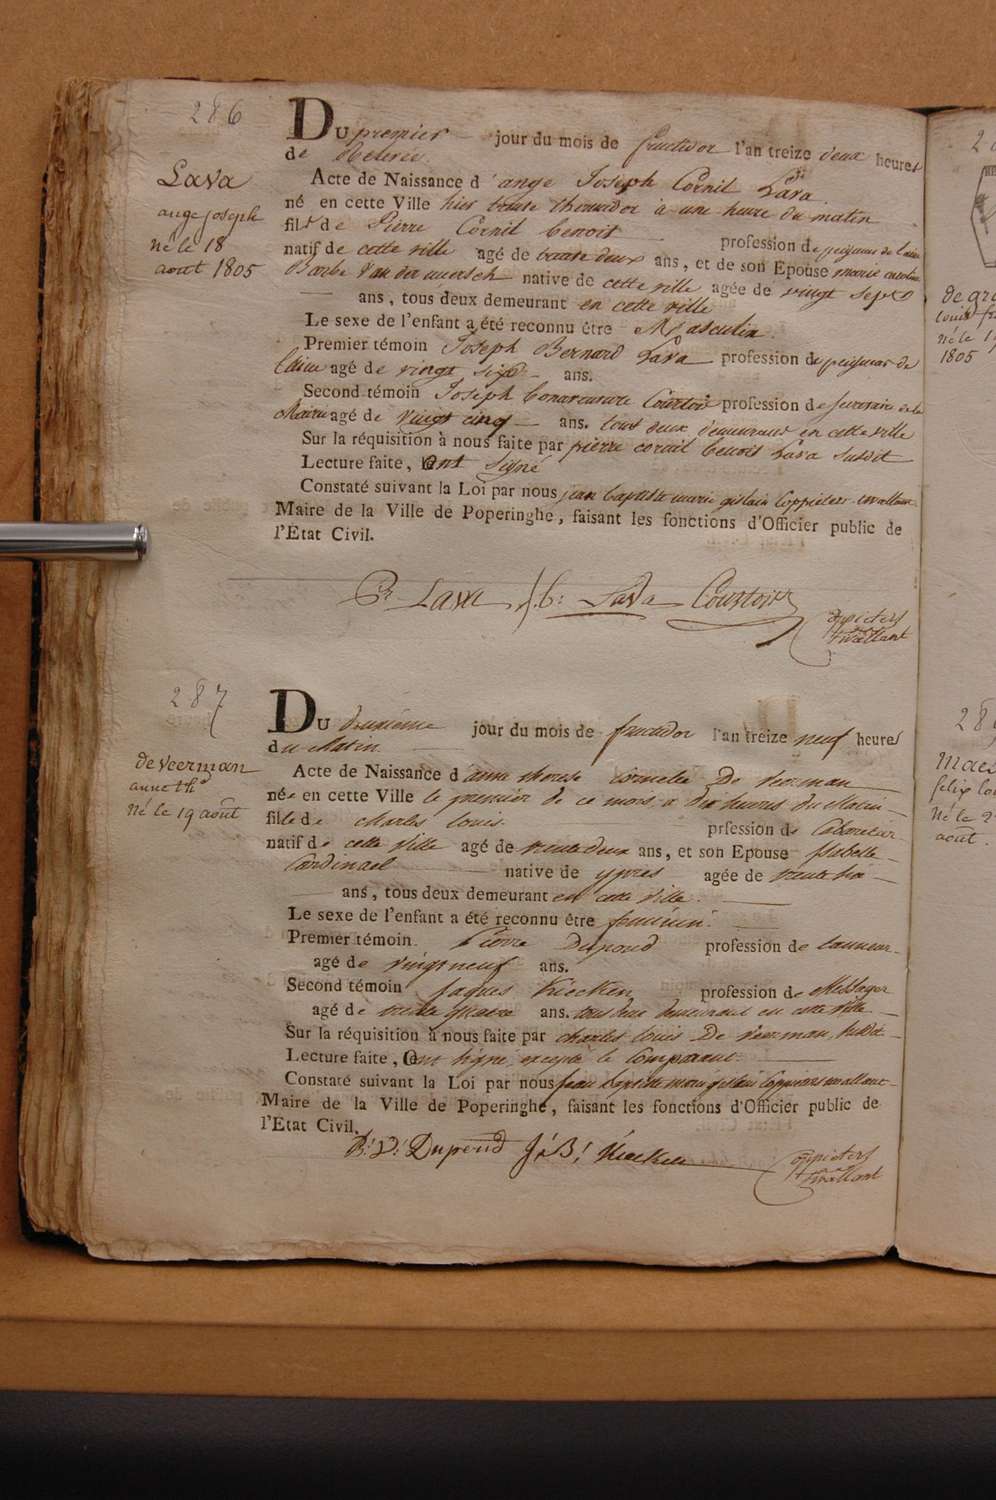 286
Lava
ange joseph
né le 18
août 1805
Du premier jour du mois de fructidor l'an treize deux heures
de Relevée
Acte de Naissance d'ange Joseph Cornil Lava
né en cette Ville hier trente thermidor à une heure du matin
fils de Pierre Cornil benoit profession de peigneur de laine
natif de cette ville agé de trente deux ans, et de son Epouse marie caroline
Barbe Van der meersch native de cette ville agée de vingt sept
ans, tous deux demeurant en cette ville
Le sexe de l'enfant a été reconnu être Masculin
Premier témoin Joseph Bernard Lava profession de peigneur de
laine agé de vingt sept ans.
Second témoin Joseph bonaventure Courtois profession de secretaire de la
Mairie agé de vingt cinq ans. tous deux demeurant en cette ville
Sur la réquisition à nous faite par pierre cornil benoit Lava susdit
Lecture faite, ont signé
Constaté suivant la Loi par nous jean baptiste marie gislain Coppieters wallant
Maire de la Ville de Poperinghe, faisant les fonctions d'Officier public de
l'Etat Civil.
Pr Lava J:b: Lava Courtois
Coppieters
twallant
287
de veerman
anne thé
Né le 19 août
Du deuxième jour du mois de fructidor l'an treize neuf heures
du Matin
Acte de Naissance d'anne therese cornelie De veerman
née en cette Ville le premier de ce mois a dix heures du Matin
fille de charles louis prfession de Laboureur
natif de cette ville agé de trente deux ans, et son Epouse Isabelle
Cardinael native de ypres agée de trente six
ans, tous deux demeurant en cette ville.
Le sexe de l'enfant a été reconnu être feminin.
Premier témoin Pierre Dupond profession de tanneur
agé de vingt neuf ans.
Second témoin Jaques Kiecken profession de Messager
agé de trente quatre ans. tous deux demeurant en cette ville
Sur la réquisition à nous faite par charles louis De veerman, susdit
Lecture faite, ont signé, excepté le Comparant.
Constaté suivant la Loi par nous jean baptiste marie gislain Coppieters wallant
Maire de la Ville de Poperinghe, faisant les fonctions d'Officier public de
l'Etat Civil.
P: J: Dupond J: B: Kiecken
Coppieters
twallant
de gra
louis fr
né le 1
1805
28
Maes
felix lou
Né le 2
août.